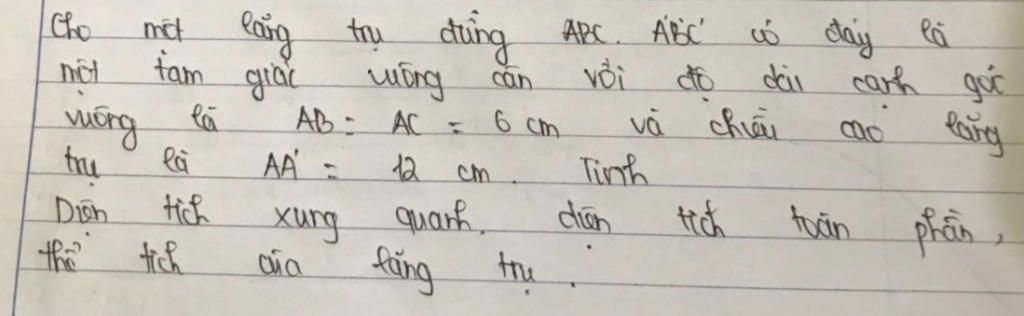 Cho một lăng trụ đứng ABC. A'B'C' có đáy là
một tam giác vuông cân với độ dài cạnh góc
vuông là AB = AC = 6 cm và chiều cao lăng
trụ là AA' = 12 cm. Tính
Diện tích xung quanh, diện tích toàn phần,
thể tích của lăng trụ.